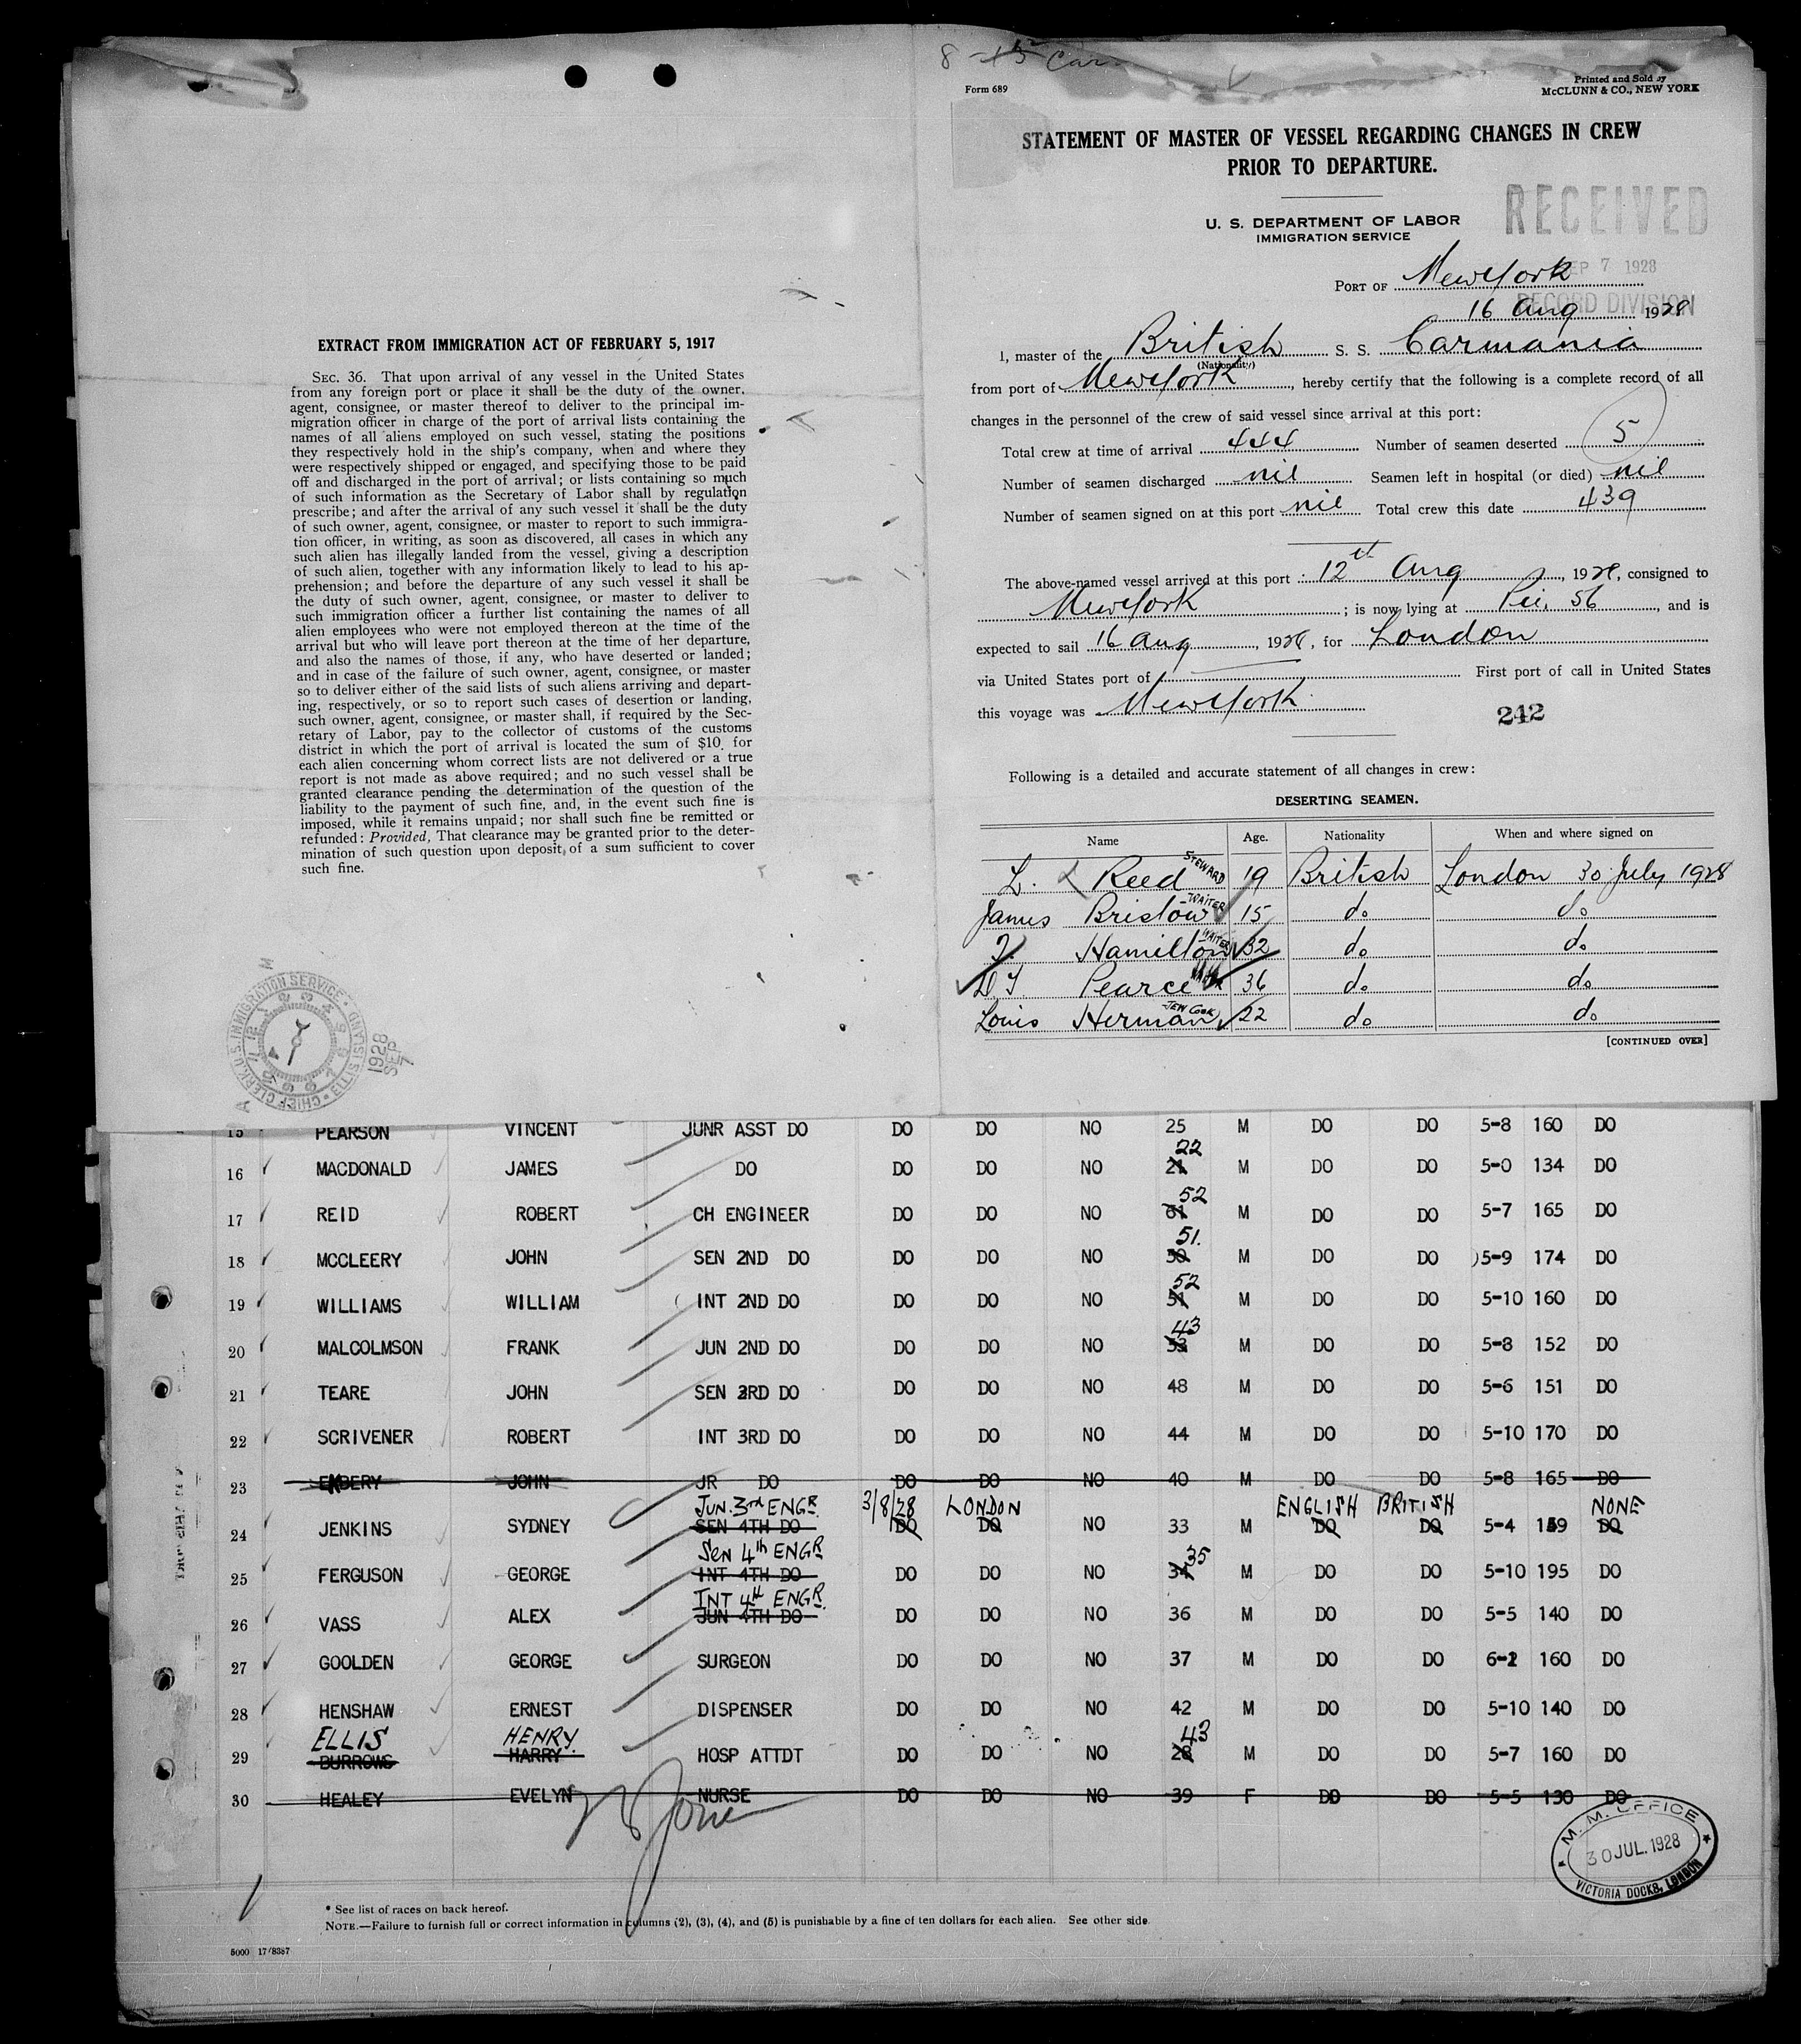 EXTRACT FROM IMMIGRATION ACT OF FEBRUARY 5, 1917
SEC. 36. That upon arrival of any vessel in the United States
from any foreign port or place it shall be the duty of the owner,
agent, consignee, or master thereof to deliver to the principal im-
migration officer in charge of the port of arrival lists containing the
names of all aliens employed on such vessel, stating the positions
they respectively hold in the ship's company, when and where they
were respectively shipped or engaged, and specifying those to be paid
off and discharged in the port of arrival; or lists containing so much
of such information as the Secretary of Labor shall by regulation
prescribe; and after the arrival of any such vessel it shall be the duty
of such owner, agent, consignee, or master to report to such immigra-
tion officer, in writing, as soon as discovered, all cases in which any
such alien has illegally landed from the vessel, giving a description
of such alien, together with any information likely to lead to his ap-
prehension; and before the departure of any such vessel it shall be
the duty of such owner, agent, consignee, or master to deliver to
such immigration officer a further list containing the names of all
alien employees who were not employed thereon at the time of the
arrival but who will leave port thereon at the time of her departure,
and also the names of those, if any, who have deserted or landed;
and in case of the failure of such owner, agent, consignee, or master
so to deliver either of the said lists of such aliens arriving and depart-
ing, respectively, or so to report such cases of desertion or landing,
such owner, agent, consignee, or master shall, if required by the Sec-
retary of Labor, pay to the collector of customs of the customs
district in which the port of arrival is located the sum of $10 for
each alien concerning whom correct lists are not delivered or a true
report is not made as above required; and no such vessel shall be
granted clearance pending the determination of the question of the
liability to the payment of such fine, and, in the event such fine is
imposed, while it remains unpaid; nor shall such fine be remitted or
refunded: Provided, That clearance may be granted prior to the deter-
mination of such question upon deposit of a sum sufficient to cover
such fine.
CHIEF CLERK, U.S. IMMIGRATION SERVICE • ELLIS ISLAND
1928
SEP
7
Form 689
Printed and Sold by
McCLUNN & CO., NEW YORK
STATEMENT OF MASTER OF VESSEL REGARDING CHANGES IN CREW
PRIOR TO DEPARTURE.
U. S. DEPARTMENT OF LABOR
IMMIGRATION SERVICE
RECEIVED
SEP 7 1928
RECORD DIVISION
PORT OF New York
16 Aug 1928
I, master of the British S. S. Carmania
(Nationality)
from port of New York, hereby certify that the following is a complete record of all
changes in the personnel of the crew of said vessel since arrival at this port:
Total crew at time of arrival 444 Number of seamen deserted 5
Number of seamen discharged nil Seamen left in hospital (or died) nil
Number of seamen signed on at this port nil Total crew this date 439
The above-named vessel arrived at this port 12th Aug, 1928, consigned to
New York; is now lying at Pier 56, and is
expected to sail 16 Aug, 1928, for London
via United States port of First port of call in United States
this voyage was New York
242
Following is a detailed and accurate statement of all changes in crew:
DESERTING SEAMEN.
Name Age. Nationality When and where signed on
L. Reed STEWARD 19 British London 30 July 1928
James Bristow WAITER 15 do do
Hamilton WAITER 32 do do
Pearce 36 do do
Louis Herman COOK 22 do do
[CONTINUED OVER]
15 PEARSON VINCENT JUNR ASST DO DO DO NO 25 M DO DO 5-8 160 DO
22
16 MACDONALD JAMES DO DO DO NO 21 M DO DO 5-0 134 DO
52
17 REID ROBERT CH ENGINEER DO DO NO 61 M DO DO 5-7 165 DO
51.
18 MCCLEERY JOHN SEN 2ND DO DO DO NO 50 M DO DO 5-9 174 DO
52
19 WILLIAMS WILLIAM INT 2ND DO DO DO NO 51 M DO DO 5-10 160 DO
43
20 MALCOLMSON FRANK JUN 2ND DO DO DO NO 53 M DO DO 5-8 152 DO
21 TEARE JOHN SEN 3RD DO DO DO NO 48 M DO DO 5-6 151 DO
22 SCRIVENER ROBERT INT 3RD DO DO DO NO 44 M DO DO 5-10 170 DO
23 EMBERY JOHN JR DO DO DO NO 40 M DO DO 5-8 165 DO
JUN. 3rd ENGR 3/8/28 LONDON ENGLISH BRITISH NONE
24 JENKINS SYDNEY SEN 4TH DO DO DO NO 33 M DO DO 5-4 159 DO
SEN 4th ENGR 35
25 FERGUSON GEORGE INT 4TH DO DO DO NO 34 M DO DO 5-10 195 DO
INT 4th ENGR.
26 VASS ALEX JUN 4TH DO DO DO NO 36 M DO DO 5-5 140 DO
27 GOOLDEN GEORGE SURGEON DO DO NO 37 M DO DO 6-1 160 DO
28 HENSHAW ERNEST DISPENSER DO DO NO 42 M DO DO 5-10 140 DO
ELLIS HENRY 43
29 BURROWS HARRY HOSP ATTDT DO DO NO 28 M DO DO 5-7 160 DO
30 HEALEY EVELYN NURSE DO DO NO 39 F DO DO 5-5 130 DO
M. M. OFFICE
30 JUL. 1928
VICTORIA DOCKS, LONDON
* See list of races on back hereof.
NOTE.—Failure to furnish full or correct information in columns (2), (3), (4), and (5) is punishable by a fine of ten dollars for each alien. See other side.
5000 17/8387